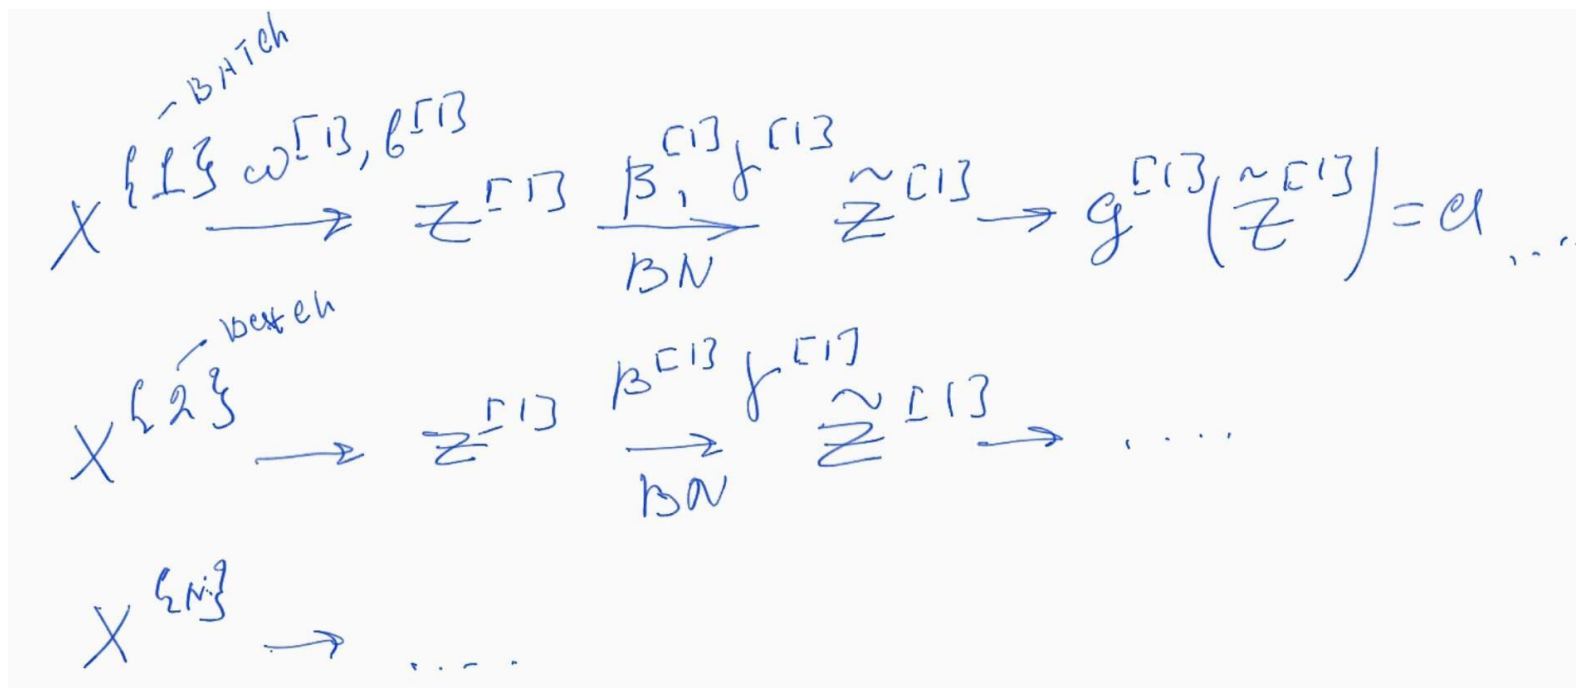 BATCH
X^{1} ω^[1], b^[1] → Z^[1] β^[1], γ^[1] BN → Z̃^[1] → g^[1](Z̃^[1]) = a ....
Batch
X^{2} → Z^[1] β^[1] γ^[1] BN → Z̃^[1] → .....
X^{N} → .....